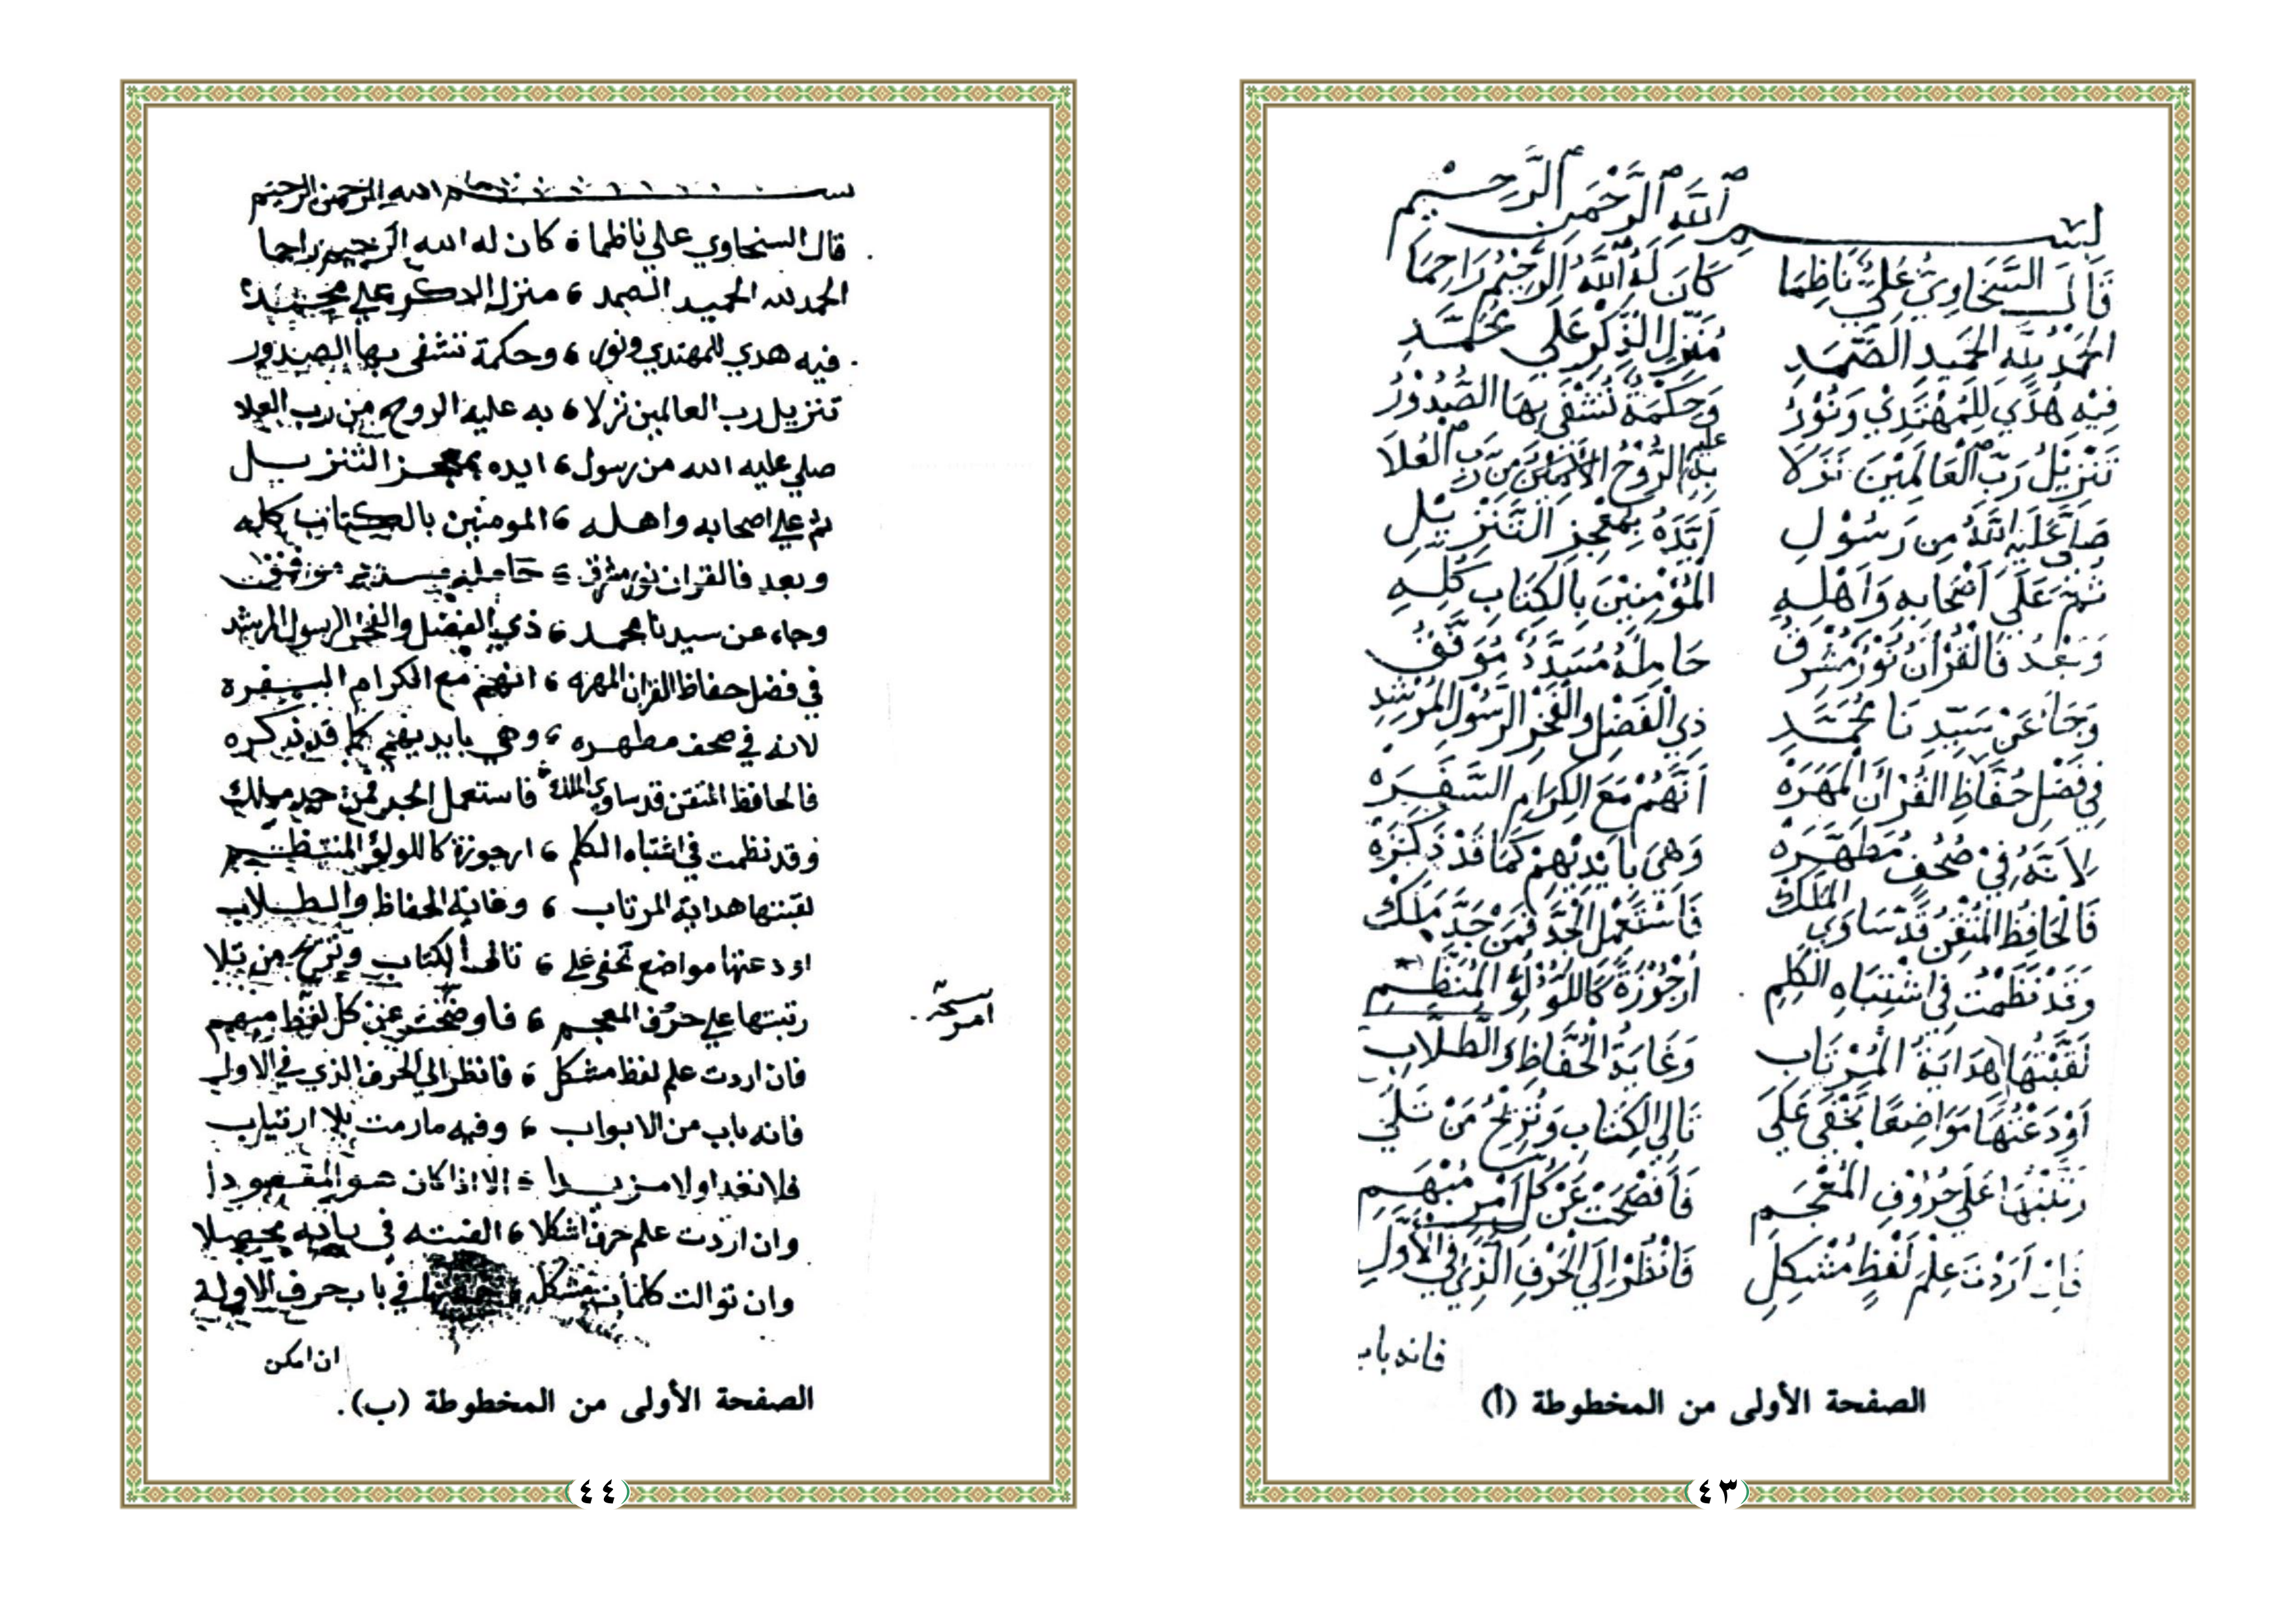 بسم الله الرحمن الرحيم
قَالَ السَّخَاوِيُّ عَلِيٌّ نَاظِمَا كَانَ لَهُ اللَّهُ الرَّحِيْمُ رَاحِمَا
الحَمْدُ لِلَّهِ الحَمِيدِ الصَّمَدِ مُنَزِّلِ الذِّكْرِ عَلَى مُحَمَّدِ
فِيْهِ هُدًى لِلْمُهْتَدِيْ وَنُوْرُ وَحِكْمَةٌ تُشْفَى بِهَا الصُّدُوْرُ
تَنْزِيْلُ رَبِّ العَالَمِيْنَ نَزَلَا بِهِ عليه الرُّوْحُ الأمين مِنْ رَبِّ العُلَا
صَلَّى عَلَيْهِ اللَّهُ مِن رَسُوْلِ أَيَّدَهُ بِمُعْجِزِ التَّنْزِيْلِ
ثُمَّ عَلَى أَصْحَابِهِ وَأَهْلِهِ المُؤْمِنِيْنَ بِالكِتَابِ كُلِّهِ
وَبَعْدُ فَالقُرْآنُ نُوْرٌ مُشْرِقُ حَامِلُهُ مُسَدَّدٌ مُوَفَّقُ
وَجَا عَنْ سَيِّدِنَا مُحَمَّدِ ذِي الفَضْلِ وَالفَخْرِ الرَّسُوْلِ المُرْشِدِ
فِي فَضْلِ حُفَّاظِ القُرْآنِ المَهَرَهْ أَنَّهُمْ مَعَ الكِرَامِ السَّفَرَهْ
لِأَنَّهُ فِيْ صُحُفٍ مُطَهَّرَهْ وَهْيَ بِأَيْدِيْهِمْ كَمَا قَدْ ذَكَرَهْ
فَالحَافِظُ المُتْقِنُ قَدْ سَاوَى المَلَكْ فَاسْتَعْمِلِ الجِدَّ فَمَنْ جَدَّ مَلَكْ
وَقَدْ نَظَمْتُ فِي اشْتِبَاهِ الكَلِمِ أُرْجُوْزَةً كَاللُّؤْلُؤِ المُنَظَّمِ
لَقَّبْتُهَا هِدَايَةَ المُرْتَابِ وَغَايَةَ الحُفَّاظِ وَالطُّلَّابِ
أَوْدَعْتُهَا مَوَاضِعًا تَخْفَى عَلَى تَالِي الكِتَابِ وَتُرِيْحُ مَنْ تَلَى
رَتَّبْتُهَا عَلَى حُرُوْفِ المُعْجَمِ فَأَفْصَحَتْ عَنْ كُلِّ أَمْرٍ مُبْهَمِ
فَإِنْ أَرَدْتَ عِلْمَ لَفْظٍ مُشْكِلِ فَانْظُرْ إِلَى الحَرْفِ الَّذِيْ فِي الأَوَّلِ
فانه باب
الصفحة الأولى من المخطوطة (أ)
٤٣
بسم الله الرحمن الرحيم
قال السخاوي علي ناظما كان له الله الرحيم راحما
الحمد لله الحميد الصمد منزل الذكر علي محمد
فيه هدي للمهتدي ونور وحكمة تشفى بها الصدور
تنزيل رب العالمين نزلا به عليه الروح من رب العلا
صلي عليه الله من رسول ايده بمعجز التنزيل
ثم علي اصحابه واهله المومنين بالكتاب كله
وبعد فالقران نور مشرق حامله مسدد موفق
وجاء عن سيدنا محمد ذي الفضل والفخر الرسول المرشد
في فضل حفاظ القران المهره انهم مع الكرام السفره
لانه في صحف مطهره وهي بايديهم كما قد ذكره
فالحافظ المتقن قد ساوي الملك فاستعمل الجد فمن جد ملك
وقد نظمت في اشتباه الكلم ارجوزة كاللولؤ المنتظم
لقبتها هداية المرتاب وغاية الحفاظ والطلاب
اودعتها مواضع تخفى علي تالى الكتاب وتريح من تلا
رتبتها علي حروف المعجم فاوضحت عن كل لفظ مبهم
نسخة امر
فان اردت علم لفظ مشكل فانظر الي الحرف الذي في الاول
فانه باب من الابواب وفيه ما رمت بلا ارتياب
فلا تعد اولا مزيدا الا اذا كان هو المقصودا
وان اردت علم حرف اشكلا الفيته في بابه محصلا
وان توالت كلمات مشكله في باب حرف الاوله
ان امكن
الصفحة الأولى من المخطوطة (ب).
٤٤